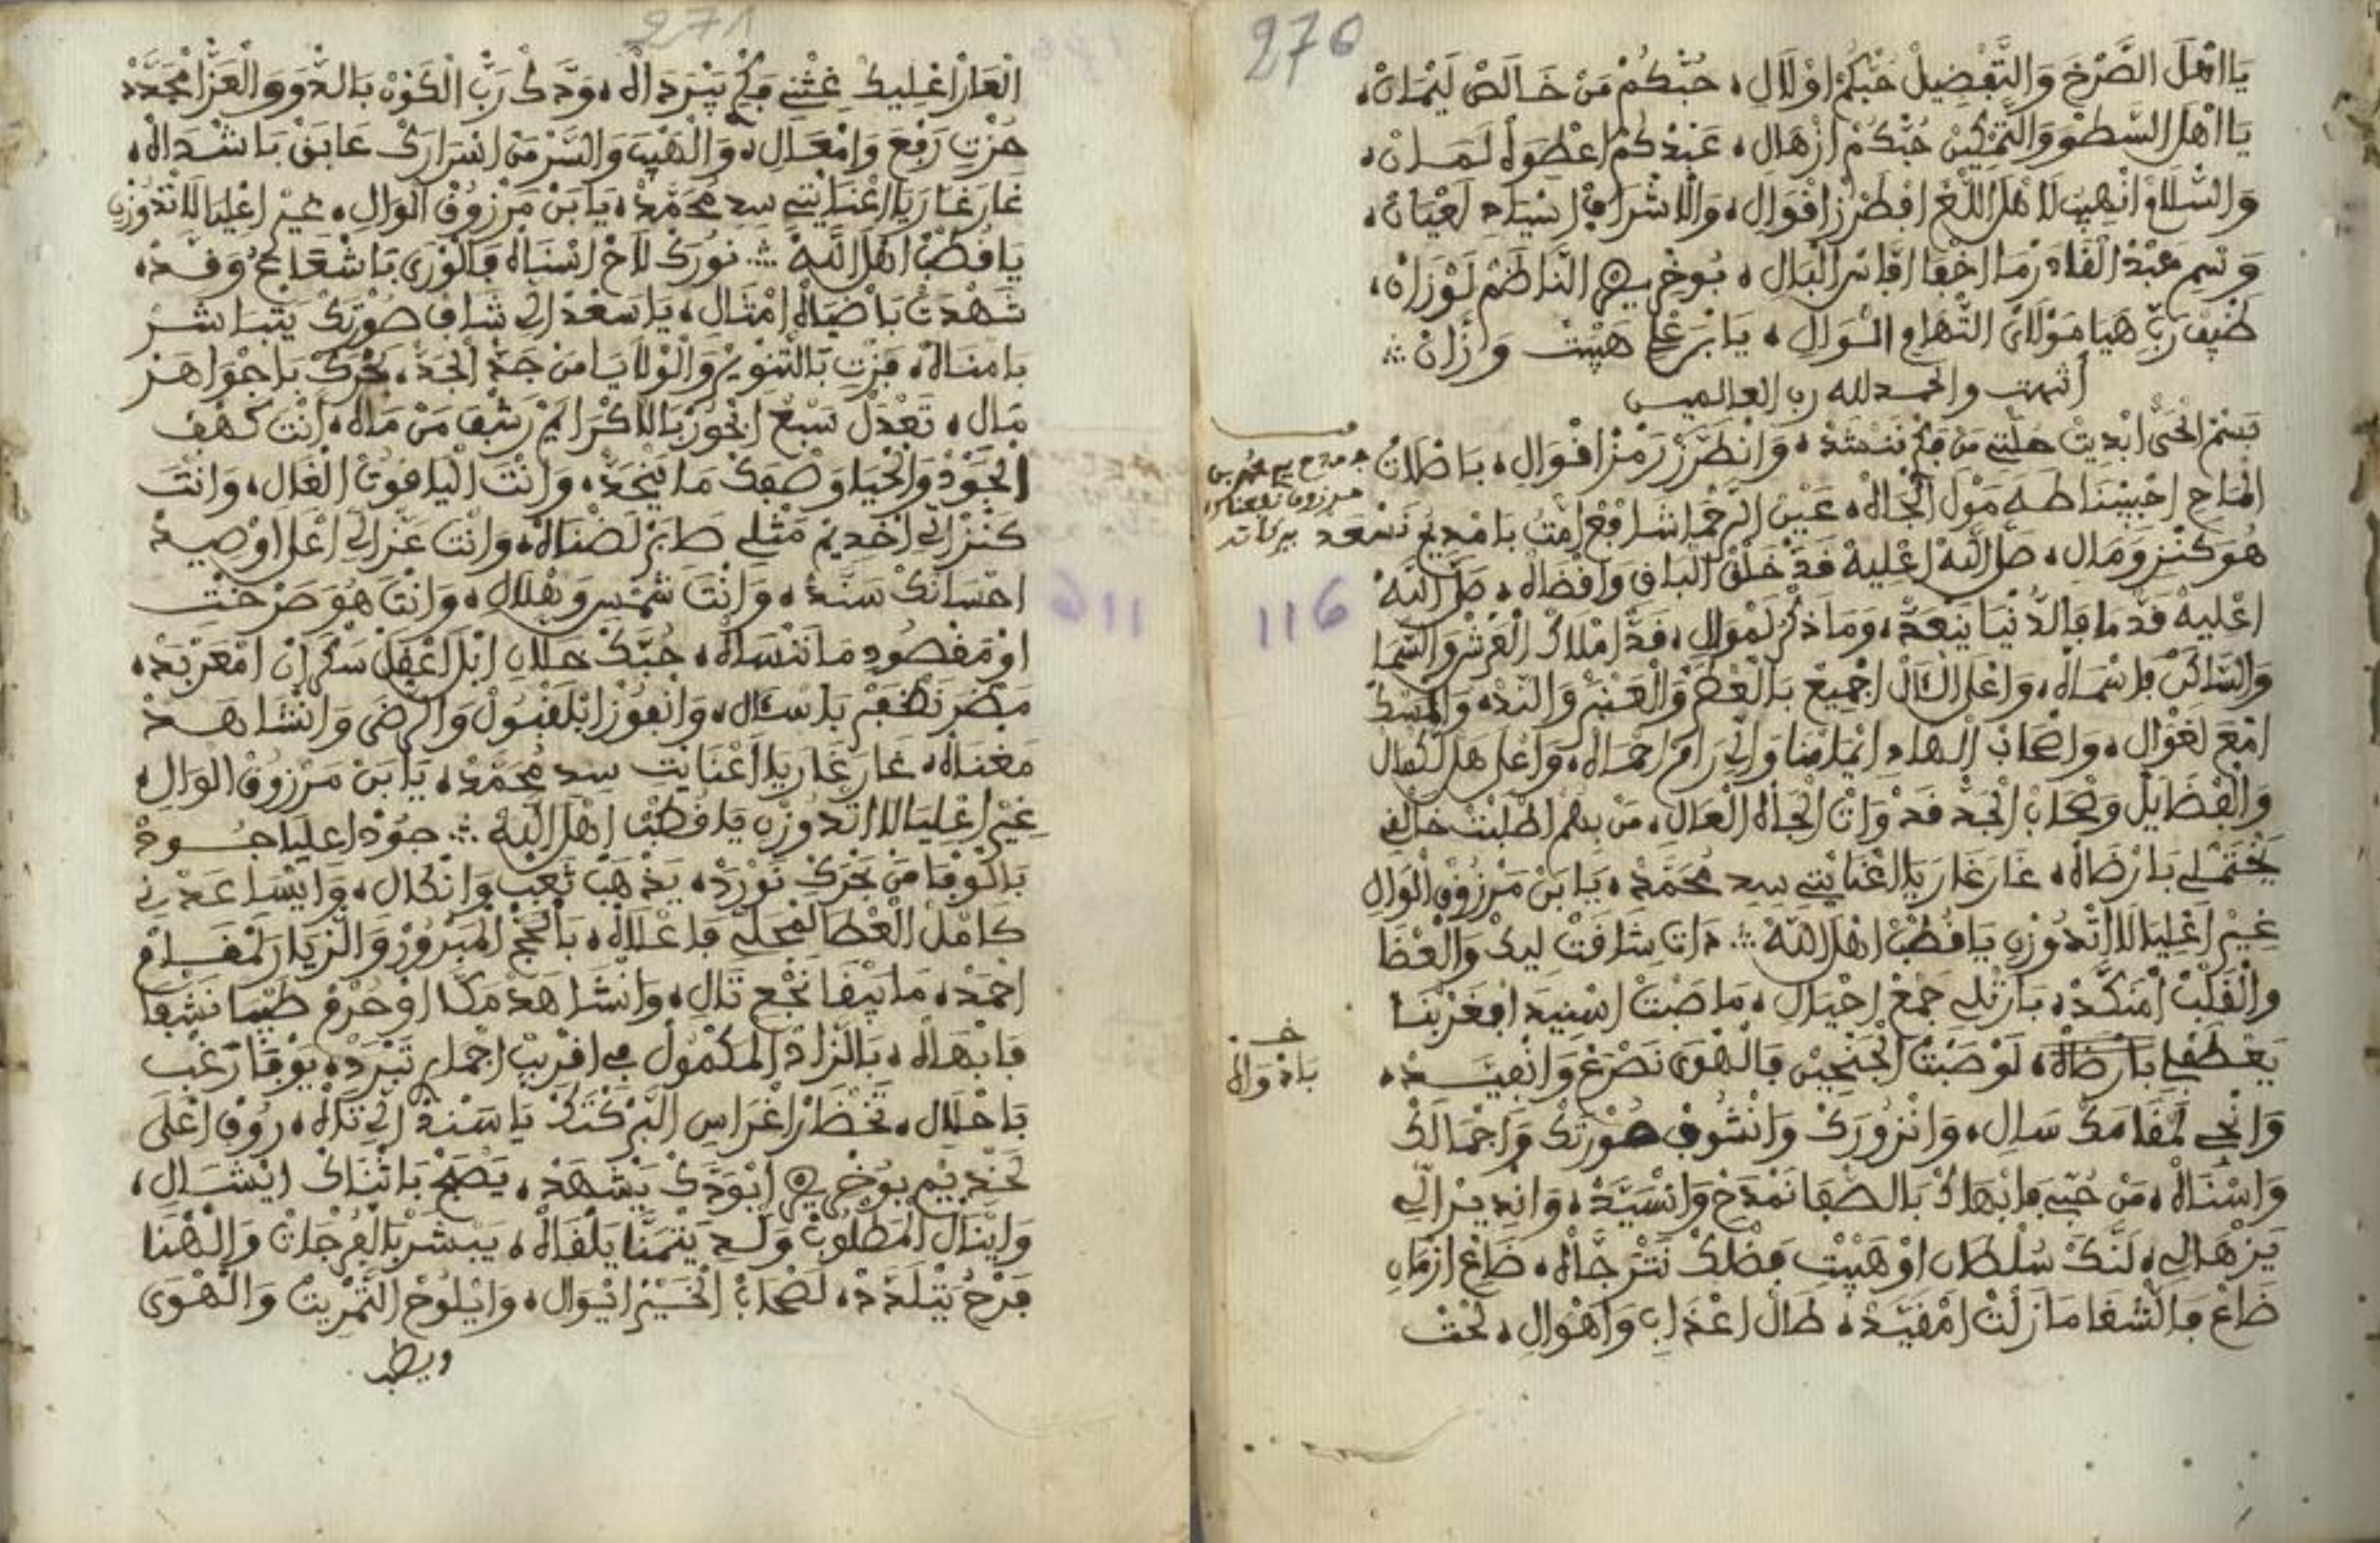 270
يَا اهْلَ الصَّرْخَ وَالتَّفْضِيلْ حُبّكُمْ اوْلَالِ، حُبّكُمْ مَنْ خَالَصْ لَيْمَانْ،
يَا اهْلَ السَّطْوَ وَالتَّمْكِينْ حُبّكُمْ ازْهَالِ، عَبْدكُمْ اعْطِوَهْ لَمَانْ،
وَالسْلَامْ انْهِيبْ لَاهْلَ اللّغَ ابْطَرْزْ اقْوَالِ، وَالَاشْرَافْ اسْيَادِ لَعْيَانْ،
وَسْمِ عَبْدْ الْقَادَرْ مَا اخْفَا افَاسْ الْبَالِ، بُوخْرِيصْ النَّاظَمْ لَوْزَانْ،
ضَيْفْ رَبِّ هَيَا مَوْلَايْ التّْهَامِ الْوَالِ، يَا بَرْعْلِ هَيْبْتْ وَزَّانْ
أنتهت والحمد لله رب العالمين
بَسْمْ الْحَيّْ ابْدِيتْ حُلّْتِي مَنْ فِكْرْ نَنْشَدْ، وَانْطَرَّزْ رَمْزْ اقْوَالِ، بَاصْلَاتْ
الْمَاحِ احْبِيبْنَا طَهَ مَوْلَ الْجَاهْ، عَيْنْ الرّحْمَا شَافَعْ امّتُ بَامْدِيحُ نَسْعَدْ
هُوَ كَنْزِ وَمَالِ، صَلَّ اللَّهْ اعْلِيهْ قَدّْ خَلْقْ الْبَاقِ وَافْضَالْ، صَلَّ اللَّهْ
اعْلِيهْ قَدّْ مَا فَالدُّنْيَا يَنْعَدّْ، وَمَا ذكْرْ لَمْوَالِ، قَدّْ امْلَاكْ الْعَرْشْ وَالسّْمَا
وَالسَّاكَنْ فَاسْمَاهْ، وَاعْلَ الْاَلْ اجْمِيعْ بَالْعْطَرْ وَالْعَنْبَرْ وَالنَّدْ، وَالْمَسْكْ
امْعَ لَغْوَالِ، وَاصْحَابْ الْهَادِ ايْمَامْنَا وَالِّي رَامْ احْمَاهْ، وَاعْلَ هَلْ لَكْمَالْ
وَالْفْضَايَلْ وَصْحَابْ الْجَدّْ قَدْوَاتْ الْجَاهْ الْعَالِ، مَنْ بِهُمْ اطْلَبْتْ خَالْقِ
يَخْتَمْلِي بَارْضَاهْ، غَارَ غَارَ يَلَا اعْنَايْتِي سِدِ مُحَمَّدْ، يَا بَنْ مَرْزُوقْ الْوَالِ
غِيرْ اعْلِيَا لَا اتْدُوزْنِ يَا قُطْبْ اهْلَ اللَّهْ ∴ ذَاتِ شَاقَتْ لِيكْ وَالْعْضَا
وَالْقَلْبْ امْنَكَّدْ، بَارْتْلِي جَمْعْ احْيَالِ، مَاصَبْتْ اسْنِيدَ افْغَرْبْنَا
يَعْطَفْلِي بَارْضَاهْ، لَوْ صَبْتْ الْجَنْحِينْ فَالْهْوَى نَصْرَعْ وَانْفِيَّدْ،
وَانْجِي لَمْقَامَكْ سَالِ، وَانْزُورَكْ وَانْشُوفْ صُورْتَكْ وَاجْمَالَكْ
وَاسْنَاهْ، مَنْ حُبِّي فَابْهَاكْ بَالصّْفَا نَمْدَحْ وَانْسَيَّدْ، وَانْدِيرْ الِّي
يَزْهَالِي، لَنَّكْ سُلْطَانِ اوْ هَيْبْتِ فَضْلَكْ نَتْرَجَّاهْ، ضَاعْ ازْمَانِ
ضَاعْ فَالشْقَا مَازَلْتْ امْقَيَّدْ، طَالْ اعْذَابِ وَاهْوَالِ، لَحْتْ
مدح سيدي محمد بن
116
بَادْوَاهْ
271
الْعَارْ اعْلِيكْ غِثْنِي فِكْرْ يَبْرَدَ الْهْ، وَدَّكْ رَبّْ الْكَوْنْ بَالدّْوَ وَالْعَزّْ امْجَدَّدْ
حُزْتِ رَفْعَ وَامْعَالِ، وَالْهَيْبَ وَالسَّرّْ مَنْ اسْرَارَكْ عَابَقْ بَاشْدَاهْ،
غَارَ غَارَ يَلَا اعْنَايْتِي سِدِ مُحَمَّدْ، يَا بَنْ مَرْزُوقْ الْوَالِ، غِيرْ اعْلِيَا لَا تْدُوزْنِ
يَا قُطْبْ اهْلَ اللَّهْ ∴ نُورَكْ لَاحْ اسْنَاهْ فَالْوْرَى بَاشْعَاعُ وَقَّدْ،
شَهْدَتْ بَاضْيَاهْ امْثَالِ، يَا سَعْدْ الِّي شَافْ صُورْتَكْ يَتْبَاشَرْ
بَامْنَاهْ، فَزْتِ بَالتَّنْوِيرْ وَالْوْلَايَا مَنْ جَدّْ الْجَدّْ، بَحْرَكْ بَاجْوَاهَرْ
مَالِ، تَعْدَلْ سَبْعْ ابْحُورْ بَالَاكْرَامْ يَرْشَفْ مَنْ مَاهْ، انْتَ كَهْفْ
الْجُودْ وَالْحْيَا وَصْفَكْ مَا يَنْحَدّْ، وَانْتَ الْيَاقُوتْ الْغَالِ، وَانْتَ
كَنْزْ الِّي اخْدِيمْ مَثْلِي صَابَرْ لَضْنَاهْ، وَانْتَ عَزْ الِّي اعْلَ اوْصِيدْ
احْسَانَكْ سَنَّدْ، وَانْتَ شَمْسِ وَهْلَالِ، وَانْتَ هُوَ صَرْخْتِ
اوْ مَقْصُودِ مَانَنْسَاهْ، حُبَّكْ خَلَّانِ ابْلَاعْقَلْ سَكْرَانْ امْعَرْبَدْ،
مَصَرْ نَظْفَرْ بَاسْآلِ، وَانْفُوزْ ابْلَقْبُولْ وَالرّْضَى وَانْشَاهَدْ
مَغْنَاهْ، غَارَ غَارَ يَلَا اعْنَايْتِ سِدِ مُحَمَّدْ، يَا بَنْ مَرْزُوقْ الْوَالِ،
غِيرْ اعْلِيَا لَا اتْدُوزْنِ يَا قُطْبْ اهْلَ اللَّهْ ∴ جُودْ اعْلِيَا جُودْ
بَالْوْفَا مَنْ بَحْرَكْ نَوْرَدْ، يَذْهَبْ تَعْبِ وَانْكَالِ، وَايْسَاعَدْنِي
كَامَلْ الْعْطَا لَمْحَلِّي فَاعْلَاهْ، بَالْحَجّْ الْمَبْرُورْ وَالزّْيَارَ لَمْقَامْ
احْمَدْ، مَا يَبْقَا نَجْعِ تَالِ، وَانْشَاهَدْ مَكَّا اوْ حُرْمْ طَيْبَا نَشْفَا
فَابْهَاهْ، بَالزَّادْ الْمَكْمُولْ فِي اقْرِيبْ اجْمَارِ تَبْرَدْ، يَوْفَا رَغْبِ
بَاحْلَالِ، تَخْضَارْ اغْرَاسِ ابَّرَكْتَكْ يَا سَنْدْ الِّي تَاهْ، رُوفْ اعْلَى
لَخْدِيمْ بُوخْرِيصْ ايْوَدَّكْ يَشْهَدْ، يَصْبَحْ بَاثْنَاكْ ايْسَالِ،
وَايْنَالْ الْمَطْلُوبْ وَالِّي يَتْمَنَّا يَلْقَاهْ، يَبْشَرْ بَالْفُرْجَاتْ وَالْهْنَا
فَرْحُ يَتْلَدَّدْ، لَصْحَابْ الْخَيْرْ ايْوَالِ، وَايْلُوحْ التَّمْرِيتْ وَالْهْوَى